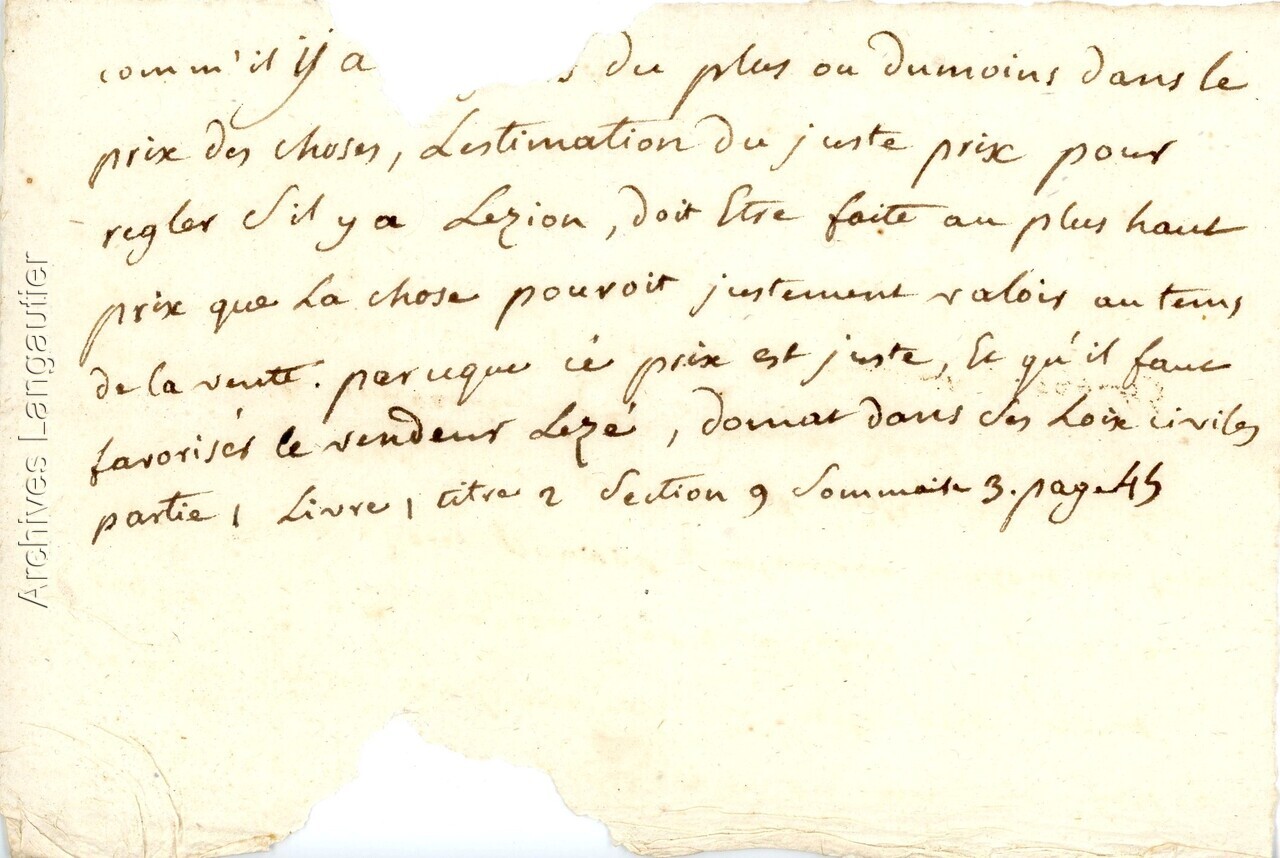 comm'il y a du plus ou dumoins dans le
prix des choses, Lestimation du juste prix pour
regler S'il y a Lezion, doit Etre faite au plus haut
prix que La chose pouvoit justement valoir au tems
de la vente. parceque cé prix est juste, Et qu'il faut
favorisér le vendeur Lezé, domat dans Ses Loix civiles
partie 1 Livre 1 titre 2 Section 9 Sommaire 3. page 45
Archives Langautier